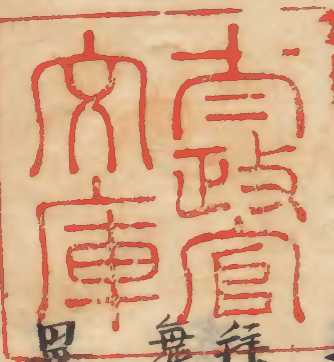 太政官
文庫
無